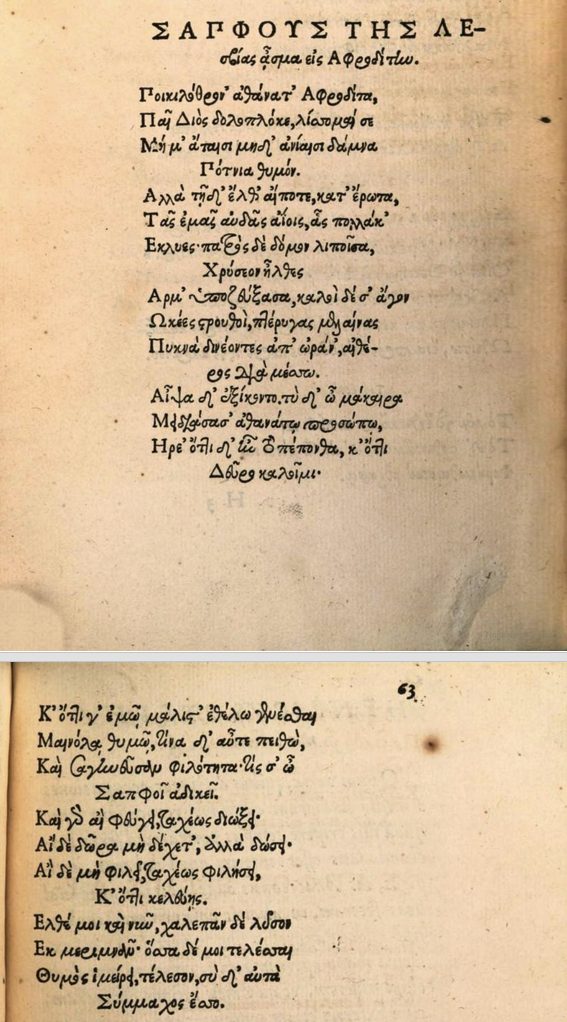 ΣΑΠΦΟΥΣ ΤΗΣ ΛΕ-
σβίας ᾆσμα εἰς Αφροδίτην.
Ποικιλόθρον' ἀθάνατ' Αφροδίτα,
Παῖ Διὸς δολοπλόκε, λίσσομαί σε
Μή μ' ἄταισι μηδ' ἀνίαισι δάμνα
Πότνια θυμόν.
Αλλὰ τῇδ' ἔλθ' αἴποτε, κατ' ἔρωτα,
Τᾶς ἐμᾶς αὐδᾶς ἀΐοις, ἃς πολλάκ'
Εκλυες· πατρὸς δὲ δόμον λιποῖσα,
Χρύσεον ἦλθες
Αρμ' ὑποζεύξασα, καλοὶ δέ σ' ἄγον
Ωκέες στρουθοὶ, πτέρυγας μελαίνας
Πυκνὰ δινέοντες ἀπ' ὠράν', αἰθέ-
ρος διὰ μέσσω.
Αἶψα δ' ἐξίκοντο. τὺ δ' ὦ μάκαιρα
Μειδιάσασ' ἀθανάτῳ προσώπῳ,
Ηρε' ὅττι δ' ἦν τὸ πέπονθα, κ' ὅττι
Δεῦρο καλοῖμι·
63
Κ' ὅττι γ' ἐμῷ μάλιστ' ἐθέλω γενέσθαι
Μαινόλᾳ θυμῷ, τίνα δ' αὖτε πειθὼ,
Καὶ σαγηνεῦσαν φιλότητα· τίς σ' ὦ
Σαπφοῖ ἀδικεῖ.
Καὶ γὰρ αἰ φεύγει, ταχέως διώξει·
Αἰ δὲ δῶρα μὴ δέχετ', ἀλλὰ δώσει·
Αἰ δὲ μὴ φιλεῖ, ταχέως φιλήσει,
Κ' ὅττι κελεύῃς.
Ελθέ μοι καὶ νῦν, χαλεπᾶν δὲ λῦσον
Εκ μεριμνᾶν· ὅσσα δέ μοι τελέσσαι
Θυμὸς ἱμείρει, τέλεσον, σὺ δ' αὐτὰ
Σύμμαχος ἔσσο.